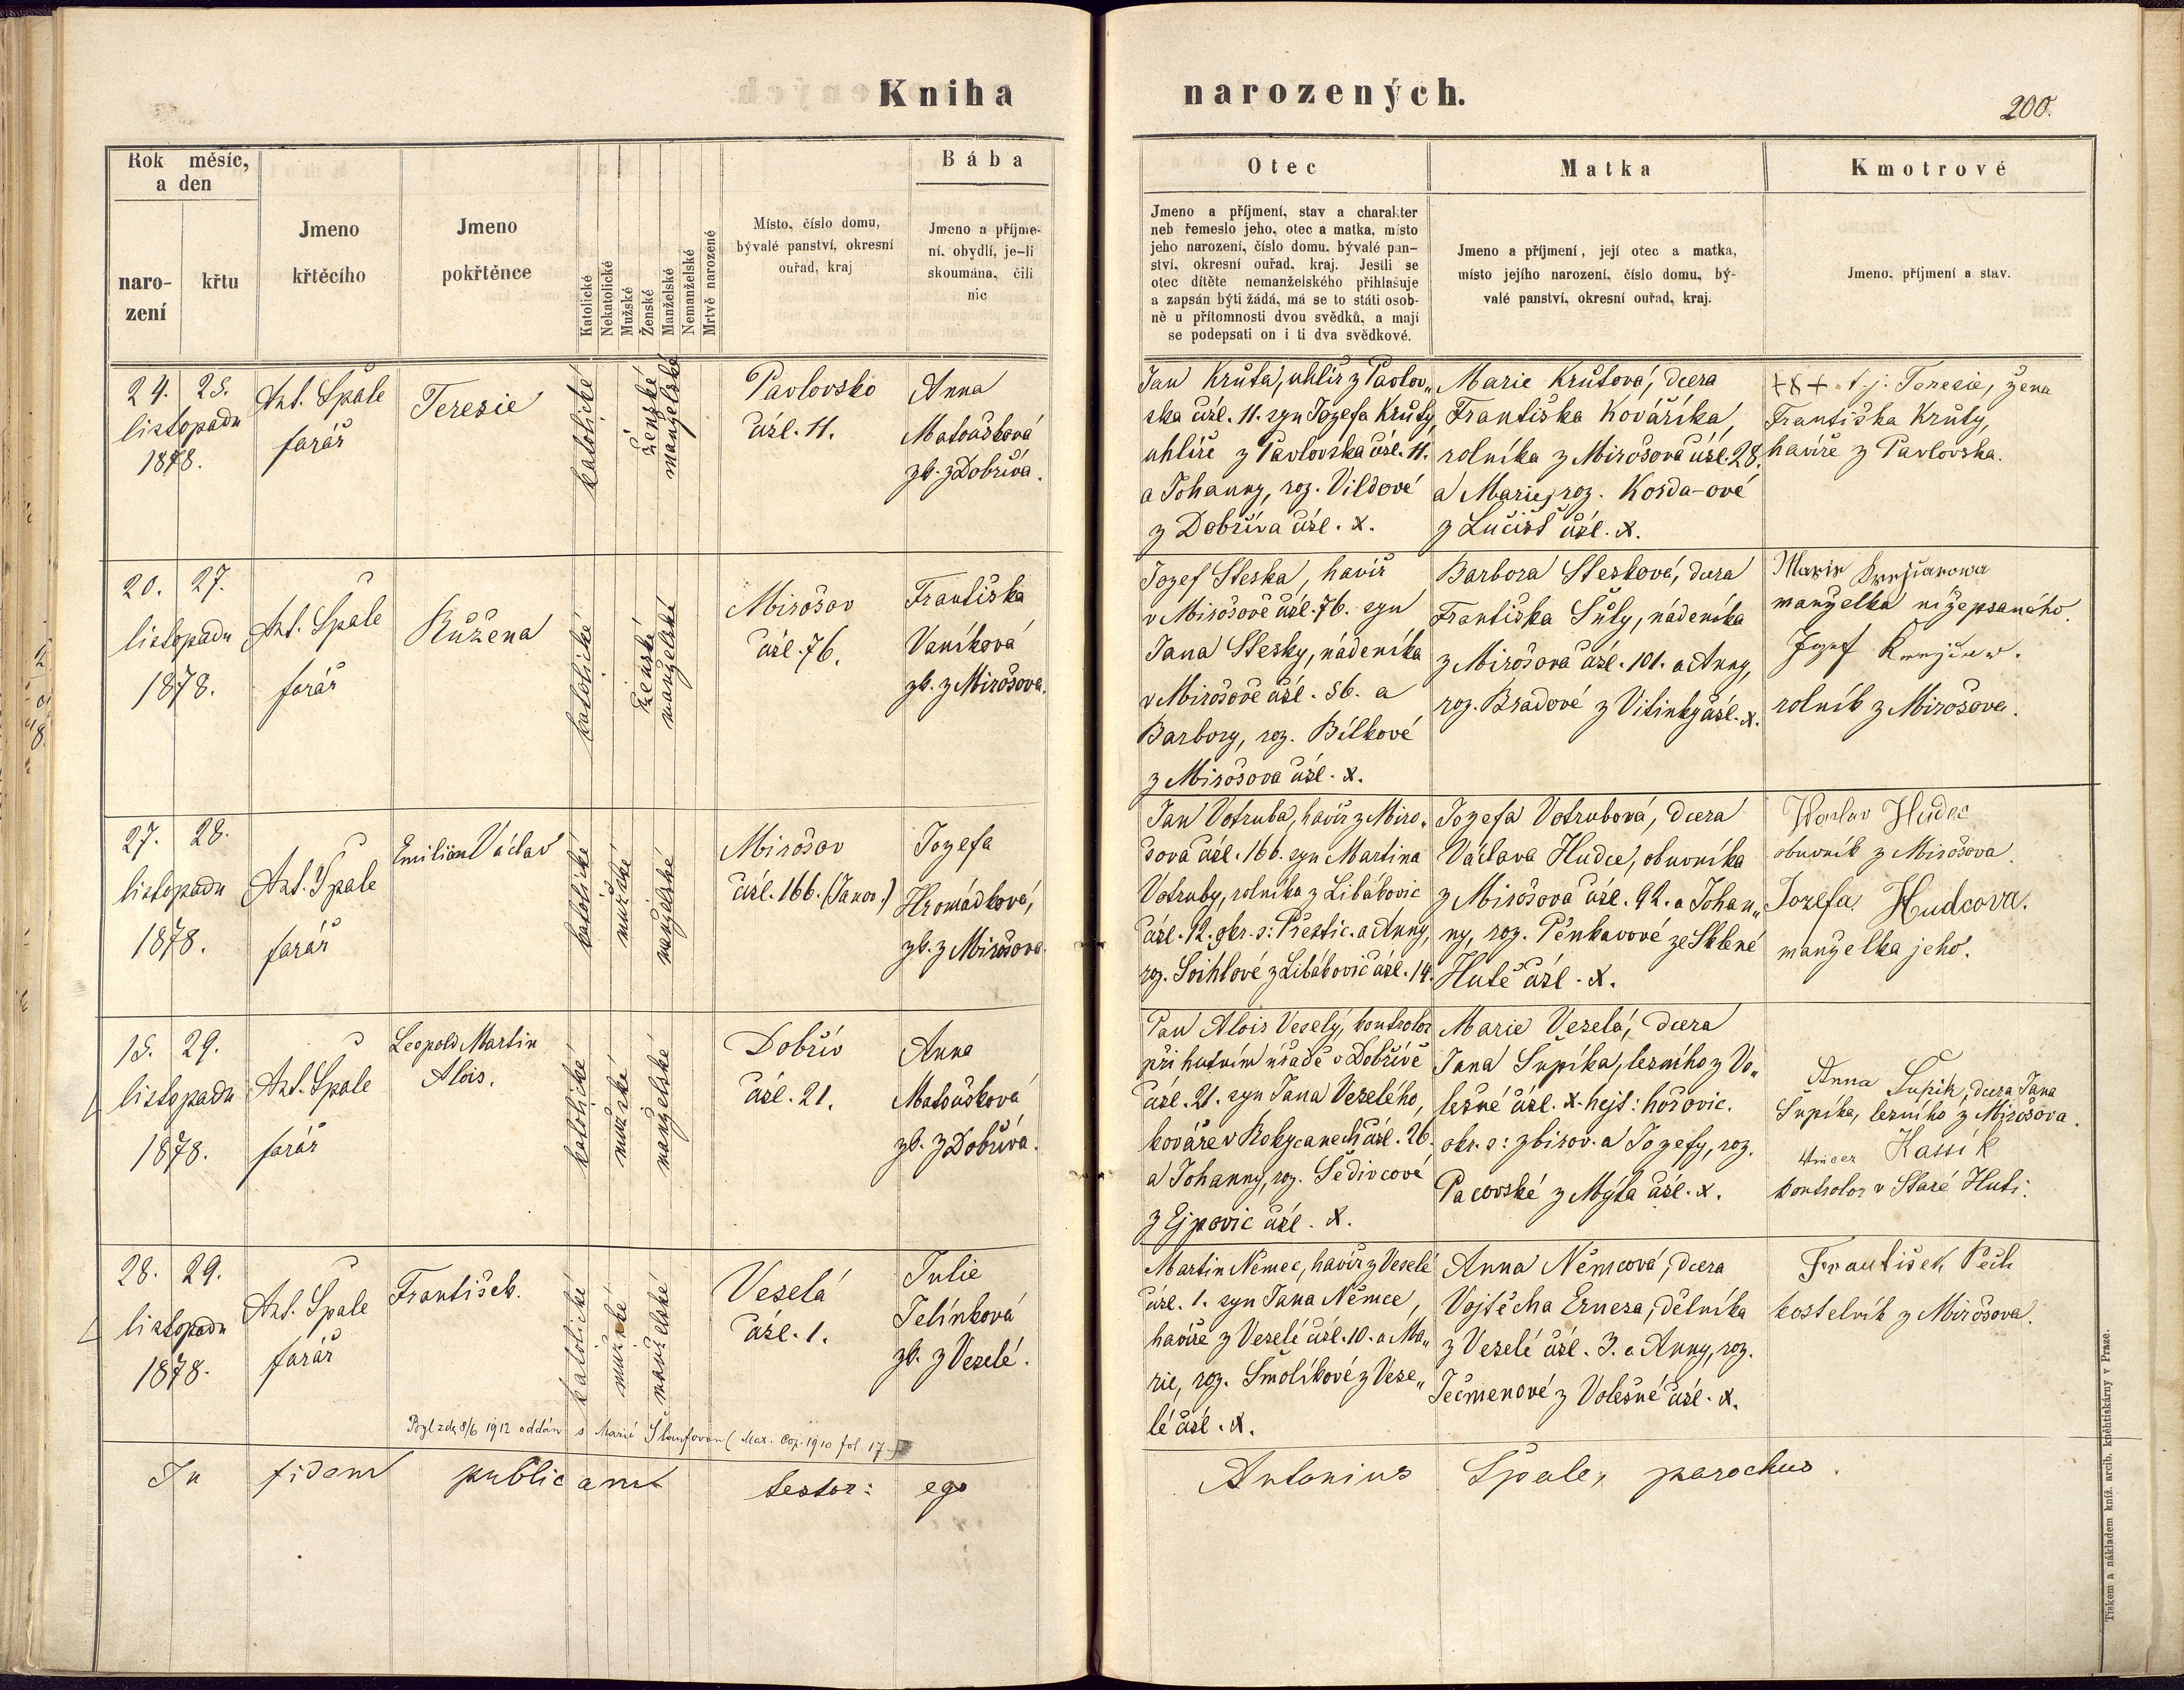 Kniha narozených.
200.
Rok měsíc, a den
naro-
zení
křtu
Jmeno
křtěcího
Jmeno
pokřtěnce
Katolické
Nekatolické
Mužské
Ženské
Manželské
Nemanželské
Mrtvě narozené
Místo, číslo domu,
bývalé panství, okresní
ouřad, kraj
Bába
Jmeno a příjme-
ní, obydlí, je-li
skoumána, čili
nic
Otec
Jmeno a příjmení, stav a charakter
neb řemeslo jeho, otec a matka, místo
jeho narození, číslo domu, bývalé pan-
ství, okresní ouřad, kraj. Jestli se
otec dítěte nemanželského přihlašuje
a zapsán býti žádá, má se to státi osob-
ně u přítomnosti dvou svědků, a mají
se podepsati on i ti dva svědkové.
Matka
Jmeno a příjmení, její otec a matka,
místo jejího narození, číslo domu, bý-
valé panství, okresní ouřad, kraj.
Kmotrové
Jmeno, příjmení a stav.
24. 25.
listopadu
1878.
Ant. Špale
farář
Terezie
katolické
ženské
manželské
Pavlovsko
čísl. 11.
Anna
Matoušková
zk. z Dobříva.
Jan Kruta, uhlíř z Pavlov„
ska čísl. 11. syn Jozefa Kruty,
uhlíře z Pavlovska čísl. 11.
a Johanny, roz. Vildové
z Dobříva čísl. x.
Marie Krutová, dcera
Františka Kováříka,
rolníka z Mirošova čísl. 28.
a Marie, roz. Korda-ové
z Lučišť čísl. x.
+++ t. j. Terezie, žena
Františka Kruty,
havíře z Pavlovska.
20. 27.
listopadu
1878.
Ant. Špale
farář
Růžena
katolické
ženské
manželské
Mirošov
čísl. 76.
Františka
Vaníková
zk. z Mirošova.
Jozef Steska, havíř
v Mirošově čísl. 76. syn
Jana Stesky, nádeníka
v Mirošově čísl. 56. a
Barbory, roz. Bílkové
z Mirošova čísl. x.
Barbora Stesková, dcera
Františka Šuly, nádeníka
z Mirošova čísl. 101. a Anny,
roz. Bradové z Vitinky čísl. x.
Marie
manželka nížepsaného.
Jozef
rolník z Mirošova.
27. 28.
listopadu
1878.
Ant. Špale
farář
Emilián Václav
katolické
mužské
manželské
Mirošov
čísl. 166. (Janov.)
Jozefa
Hromádková,
zk. z Mirošova
Jan Votruba, havíř z Miro„
šova čísl. 166. syn Martina
Votruby, rolníka z Libákovic
čísl. 12. okr. s: Přestic. a Anny,
roz. Soihlové z Libákovic čísl. 14.
Jozefa Votrubová, dcera
Václava Hudce, obuvníka
z Mirošova čísl. 92. a Johan„
ny, roz. Pěnkavové ze Sklené
Hutě čísl. x.
Hudec
obuvník z Mirošova.
Jozefa Hudcova.
manželka jeho.
15. 29.
listopadu
1878.
Ant. Špale
farář
Leopold Martin
Alois.
katolické
mužské
manželské
Dobřív
čísl. 21.
Anna
Matoušková
zk. z Dobříva.
Pan Alois Veselý, kontrolor
při hutním úřadě v Dobřívě
čísl. 21. syn Jana Veselého,
kováře v Rokycanech čísl. 26.
a Johanny, roz. Šedivcové
z Ejpovic čísl. x.
Marie Veselá, dcera
Jana Šupíka, lesního z Vo„
lešné čísl. x. hejt: hořovic.
okr. s: zbirov. a Jozefy, roz.
Pacovské z Mýta čísl. x.
Anna Šupík, dcera Jana
Šupíka, lesního z Mirošova.
Kassik
kontrolor v Staré Huti.
28. 29.
listopadu
1878.
Ant. Špale
farář
František.
katolické
mužské
manželské
Veselá
čísl. 1.
Julie
Jelínková
zk. z Veselé.
Byl zde 8/6 1912 oddán s Marií Šlaufovou (Mat. Cop. 1910 fol. 17.)
Martin Němec, havíř z Veselé
čísl. 1. syn Jana Němce,
havíře z Veselé čísl. 10. a Ma„
rie, roz. Smolíkové z Vese„
lé čísl. x.
Anna Němcová, dcera
Vojtěcha Ernesa, dělníka
z Veselé čísl. 3. a Anny, roz.
Ječmenové z Volešné čísl. x.
František Pech
kostelník z Mirošova.
In fidem publicam testor: ego Antonius Špale, parochus.
Tiskem a nákladem kníž. arcib. kněhtiskárny v Praze.